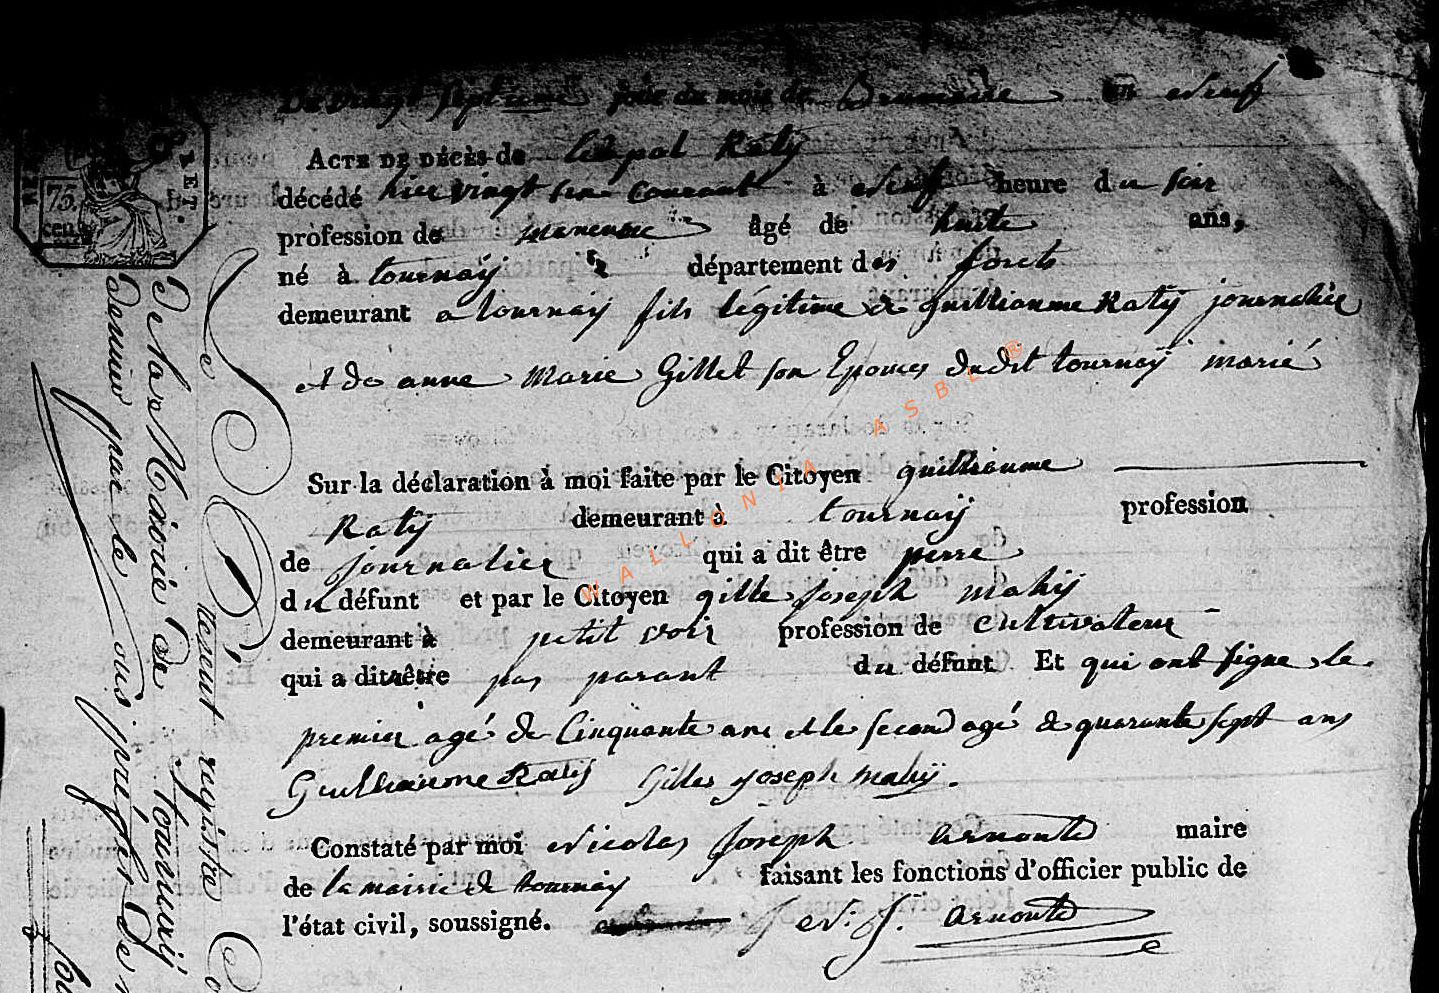 Du Vingt septieme jour du mois de Brumaire an neuf
ACTE DE DÉCÈS de Léopol Raty
décédé hier vingt six Courant à neuf heure du soir
profession de manœuvre âgé de huite ans,
né à tournay département des forets
demeurant a tournay fils légitime de guilliaume Raty journalier
et de anne Marie Gillet son Epouse dudit tournay marié
Sur la déclaration à moi faite par le Citoyen guilliaume
Raty demeurant à tournay profession
de journalier qui a dit être perre
du défunt et par le Citoyen gille joseph mahy
demeurant à petit voir profession de Cultivateur
qui a dit être pas parant du défunt Et qui ont signe le
premier agé de Cinquante ans et le second agé de quarante sept ans
Guilliaume Raty Gilles joseph mahy.
Constaté par moi Nicolas Joseph arnould maire
de la mairie de tournay faisant les fonctions d'officier public de
l'état civil, soussigné. N. J. arnould
WALLONIA ASBL ®
75
cen
Le P
tenut registre
de la Mairie de tournay
dernier par le sous préfet de